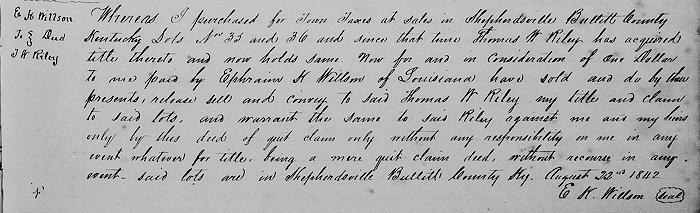 E K Willson
To } Deed
T W Riley
Whereas I purchased for Town Taxes at sales in Shepherdsville Bullitt County
Kentucky Lots Nos 35 and 36 and since that time Thomas W Riley has acquired
title thereto and now holds same. Now for and in consideration of One Dollar
to me paid by Ephraim K Willson of Louisiana have sold and do by these
presents, release sell and convey to said Thomas W Riley my title and claim
to said lots, and warrant the same to said Riley against me and my heirs
only by this deed of quit claim only without any responsibility on me in any
event whatever for title, being a mere quit claim deed, without recourse in any
event - said lots are in Shepherdsville Bullitt County Ky. August 22nd 1842
E. K. Willson seal